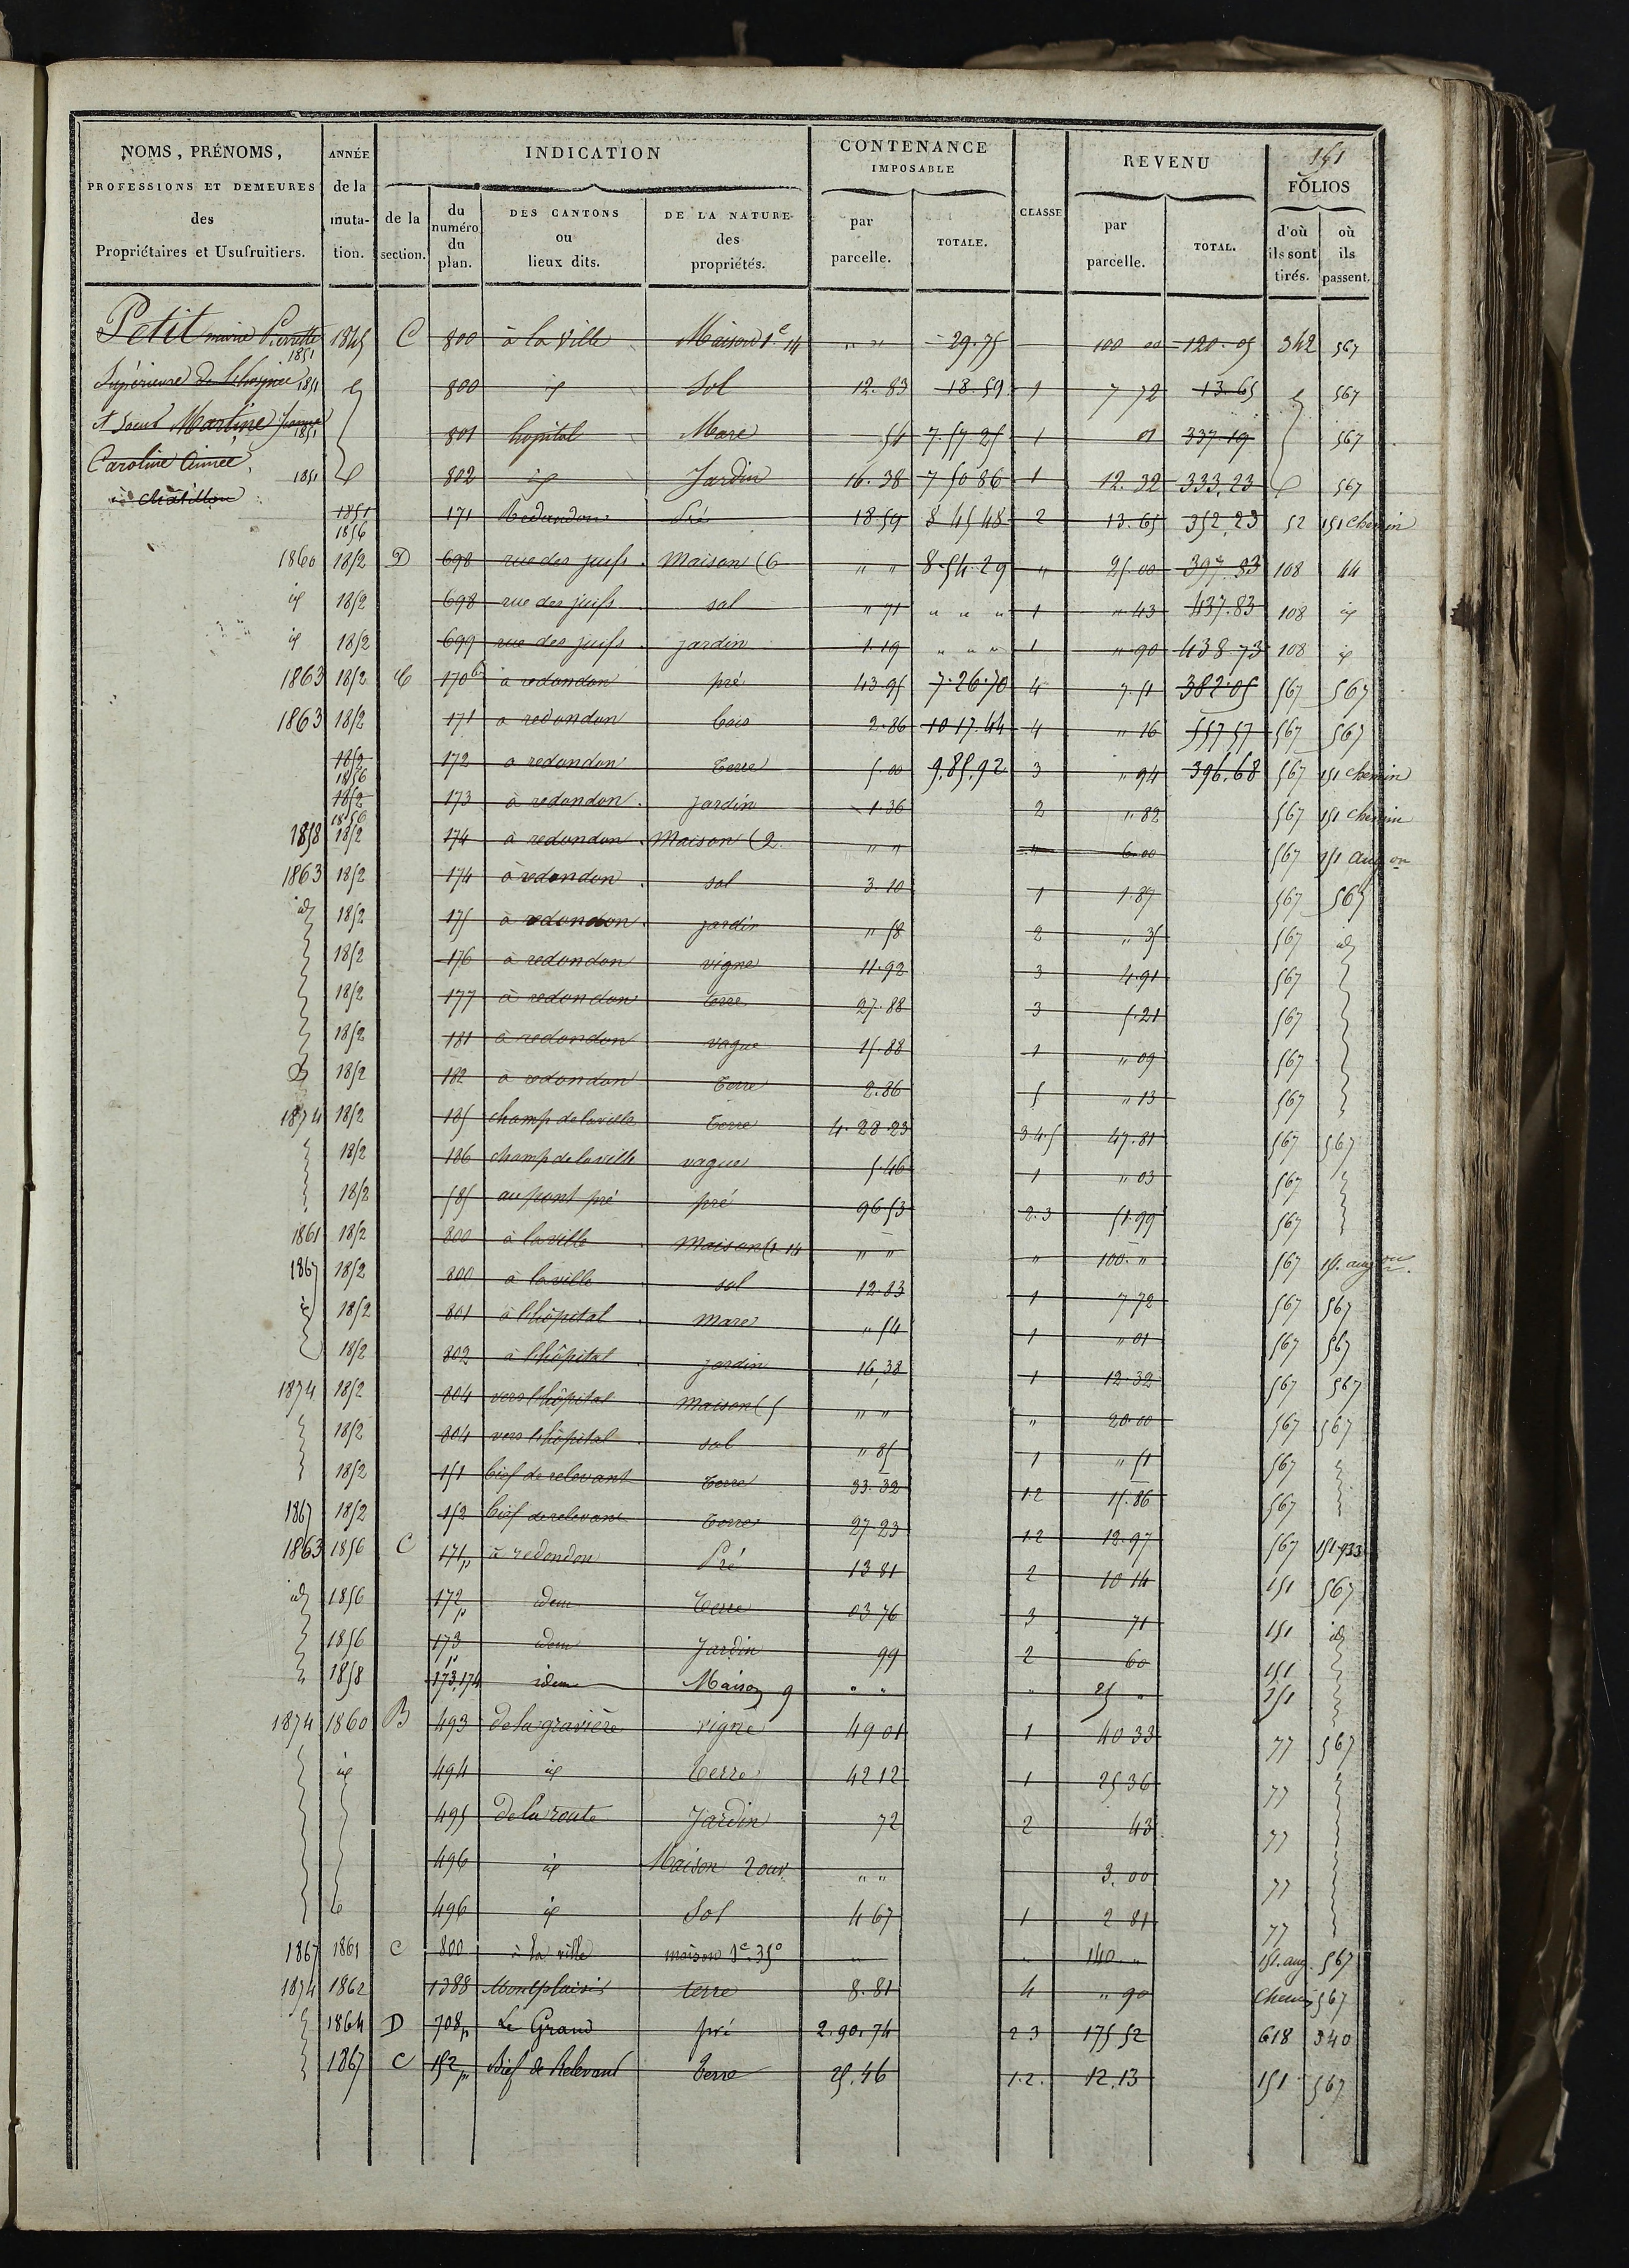 151
NOMS, PRÉNOMS, PROFESSIONS ET DEMEURES des Propriétaires et Usufruitiers.
ANNÉE de la muta-tion.
INDICATION
de la section.
du numéro du plan.
DES CANTONS ou lieux dits.
DE LA NATURE des propriétés.
CONTENANCE IMPOSABLE
par parcelle.
TOTALE.
CLASSE
REVENU
par parcelle.
TOTAL.
FOLIOS
d'où ils sont tirés.
où ils passent.
Petit marie Pierrette 1851 1845 C 800 à la Ville Maison 1e 14 " " 29.75 100 00 120.05 342 567
Supérieure de 1851 800 id Sol 12.83 18.59 1 7 72 13.65 567
et soeur Martine Jeanne 1851 801 hopital Mare 54 7 57 25 1 01 337.19 567
Caroline Aimée 1851 802 id Jardin 16.38 7 50 86 1 12.32 333.23 567
à Châtillon
1851 1856 171 Redondon Pré 18.59 8 45 48 2 13.65 352.23 52 151 chemin
1860 1852 D 698 rue des juifs Maison (6 " " 8.54.29 " 25.00 397.83 108 44
id 1852 698 rue des juifs sol " 71 " " " 1 " 43 437.83 108 id
id 1852 699 rue des juifs jardin 1.19 " " " 1 " 90 438 73 108 id
1863 1852 C 170 à redondon pré 43.95 7.26.70 4 7.51 382.05 567 567
1863 1852 171 à redondon bois 2.86 10 17.44 4 " 16 557 57 567 567
1852 1856 172 à redondon terre 5.00 9.85.92 3 " 94 396.68 567 151 chemin
1852 1856 173 à redondon jardin 1.36 2 " 82 567 151 chemin
1858 1852 174 à redondon Maison (2 " " " 6.00 567 151 aug on
1863 1852 174 à redondon sol 3.10 1 1.87 567 567
id 1852 175 à redondon jardin " 58 2 " 35 567 id
1852 176 à redondon vigne 11.92 3 4.91 567
1852 177 à redondon terre 27.88 3 5.21 567
1852 181 à redondon vague 15.88 1 " 09 567
1852 182 à redondon terre 2.86 5 " 13 567
1874 1852 185 champ de la ville terre 4.28.23 3.4.5 47.81 567 567
1852 186 champ de la ville vague 5.46 1 " 03 567
1852 585 au pont pré pré 96 53 2.3 51.99 567
1861 1852 800 à la ville Maison (1. 14 " " " 100. " 567 151. aug on
1867 1852 800 à la ville sol 12.83 1 7 72 567 567
id 1852 801 à l'hôpital mare " 54 1 " 01 567 567
1852 802 à l'hôpital jardin 16,38 1 12.32 567 567
1874 1852 804 vers l'hôpital Maison (5 " " " 20.00 567 567
1852 804 vers l'hôpital sol " 85 1 " 51 567
1852 151 bief de relevant terre 33.32 1 2 15.86 567
1867 1852 152 bief de relevant terre 27.23 1 2 12.97 567 151.933
1863 1856 C 171p à redondon Pré 13 81 2 10 14 151 567
id 1856 172p idem Terre 03 76 3 71 151 id
1856 173p idem Jardin 99 2 60 151
1858 173.174 idem Maison 9 " " " 25 " 151
1874 1860 B 493 de la gravière vigne 49 01 1 40 33 77 567
id 494 id Terre 42 12 1 25 36 77
495 de la route Jardin 72 2 43 77
496 id Maison 2 ouv. " " 3.00 77
496 id Sol 4 67 1 2 81 77
1867 1861 C 800 à la ville maison 1e. 35o " " 140 " 151. aug. 567
1874 1862 1388 Montplaisir terre 8.81 4 " 90 chemin 567
1864 D 708p Le Grand pré 2.90.74 2 3 175 52 618 340
1867 C 152p Bief de Relevant Terre 25.46 1.2. 12.13 151 567